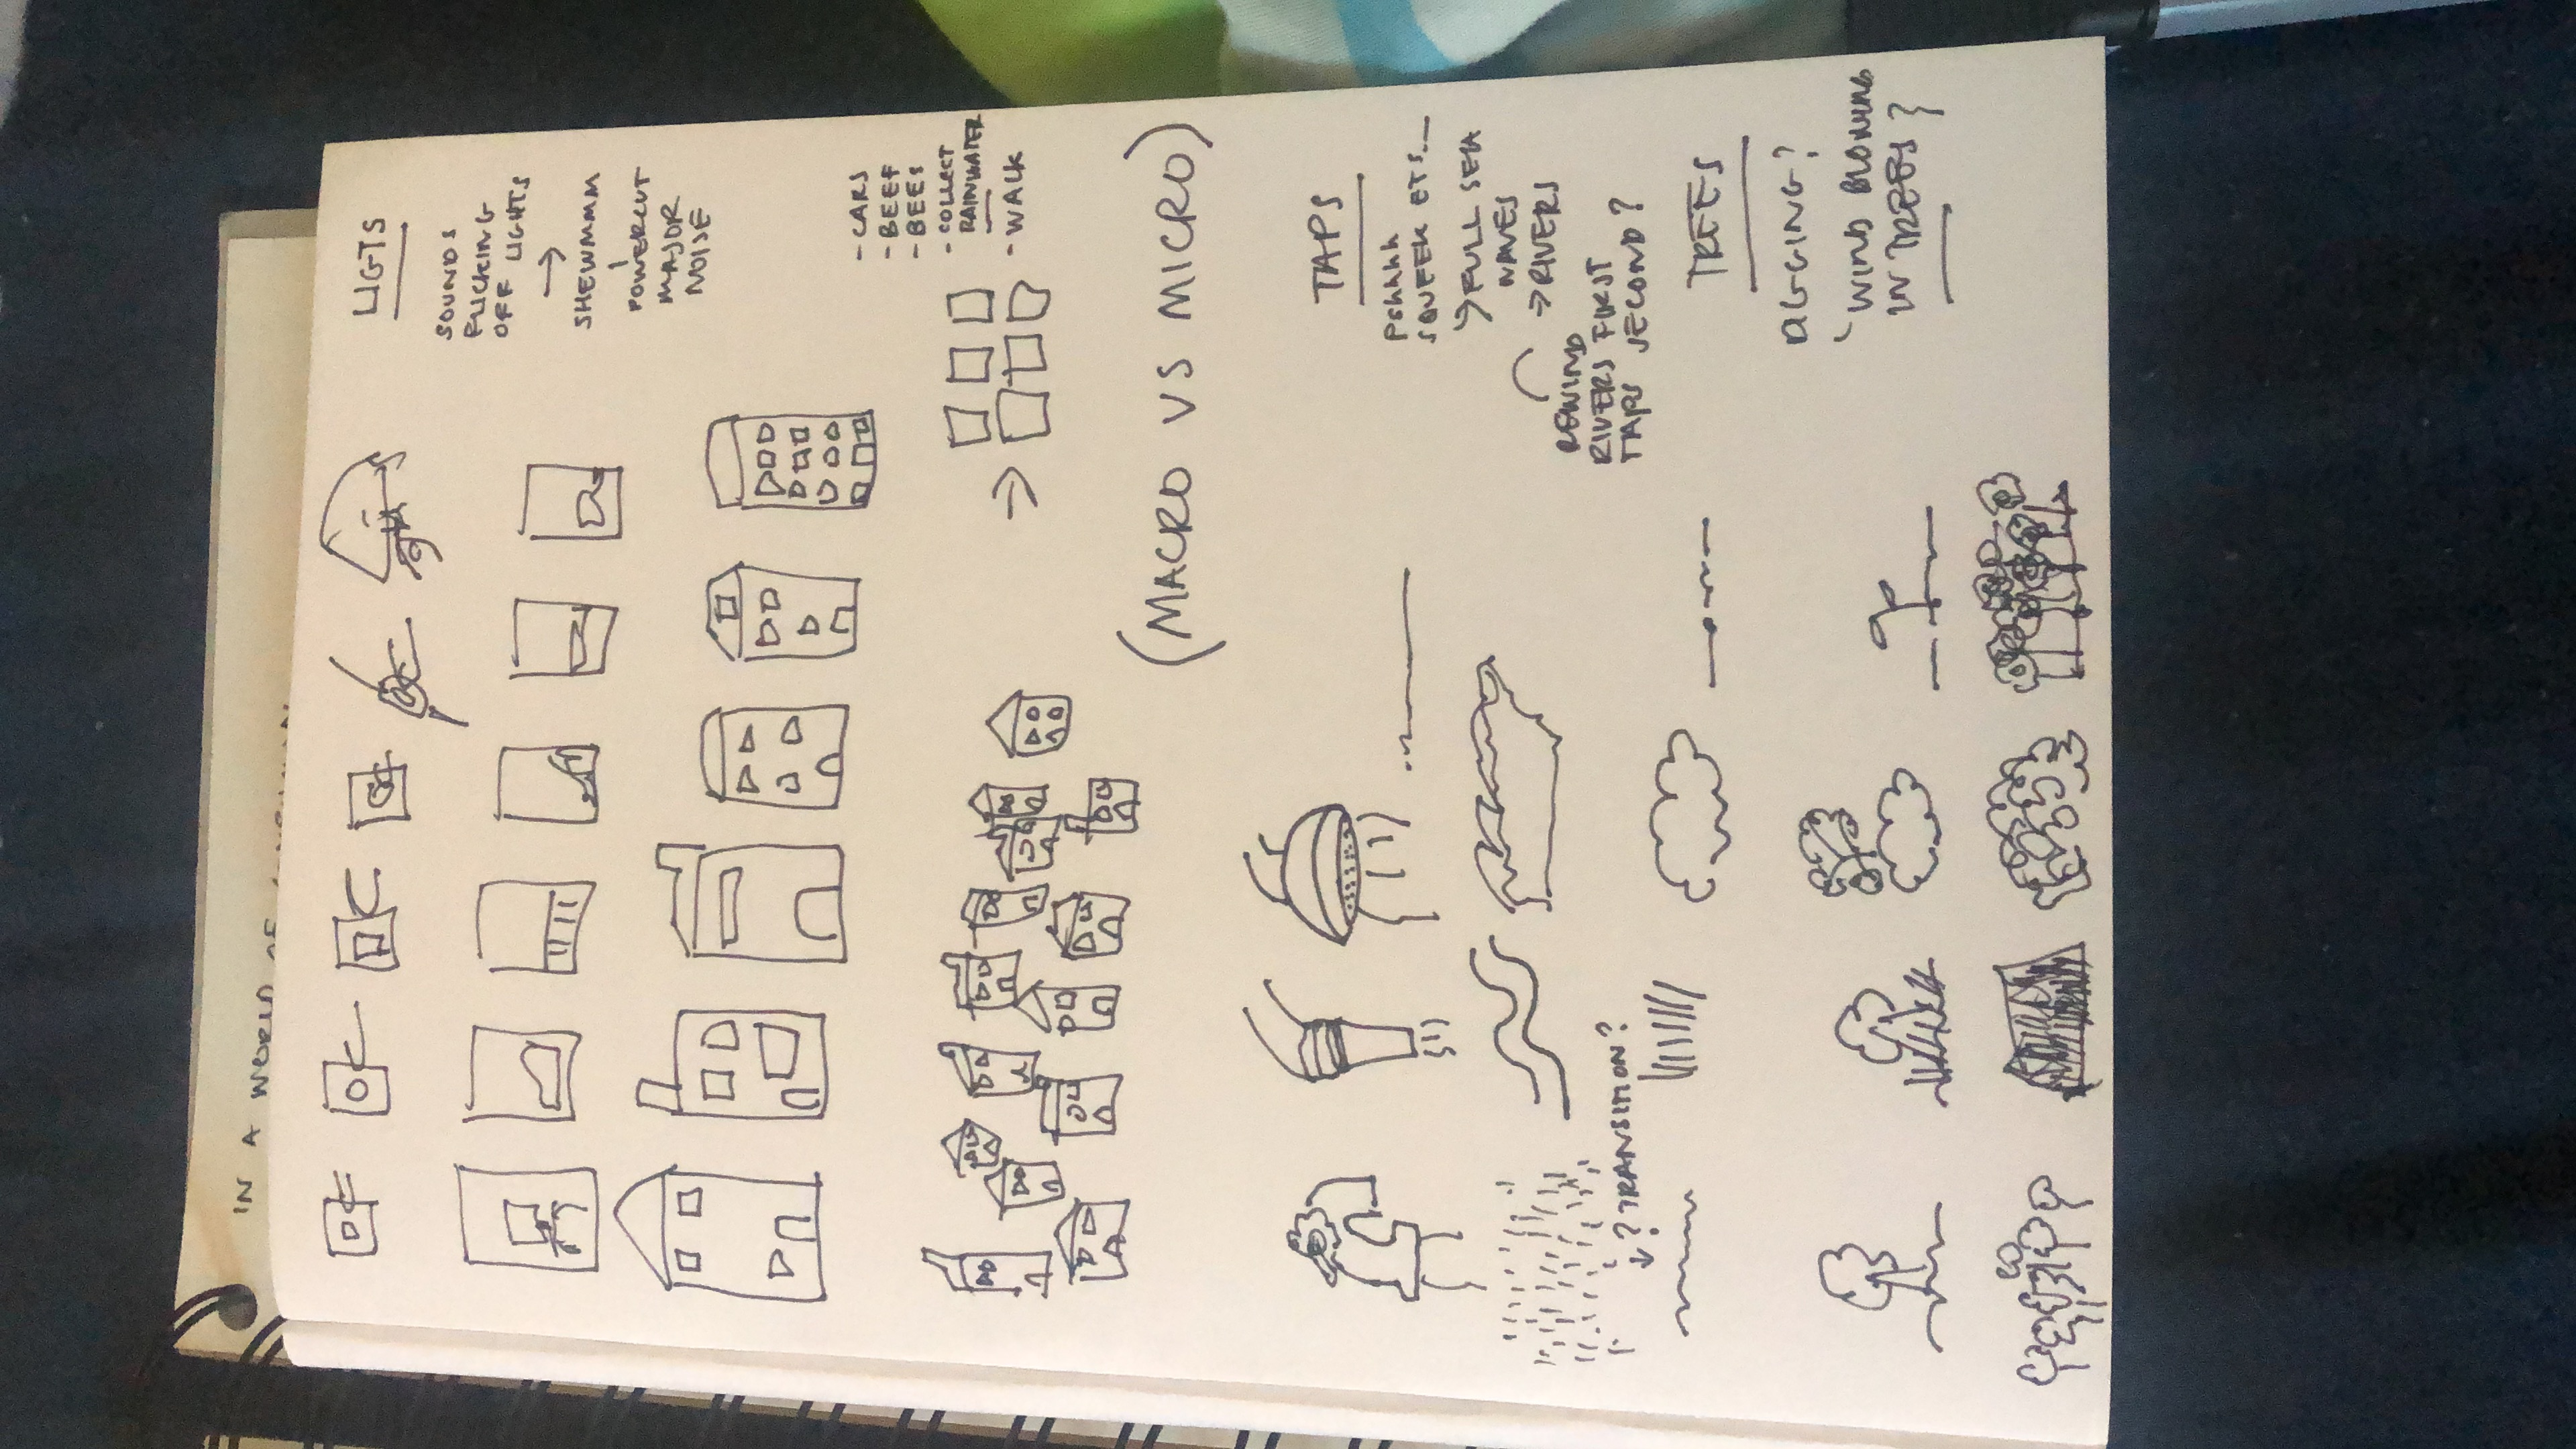 IN A WORLD OF
LIGTS
SOUNDS
FLICKING
OFF LIGHTS
→
SHEWMMM
POWERCUT
MAJOR
NOISE
- CARS
- BEEF
- BEES
- COLLECT
RAINWATER
- WALK
→
(MACRO VS MICRO)
TAPS
Pshhhh
SQUEEK ETS...
→ FULL SEA
WAVES
→ RIVERS
REWIND
RIVERS FIRST
TAPS SECOND?
↓ ? TRANSITION?
TREES
DIGGING?
WIND BLOWING
IN TREES?